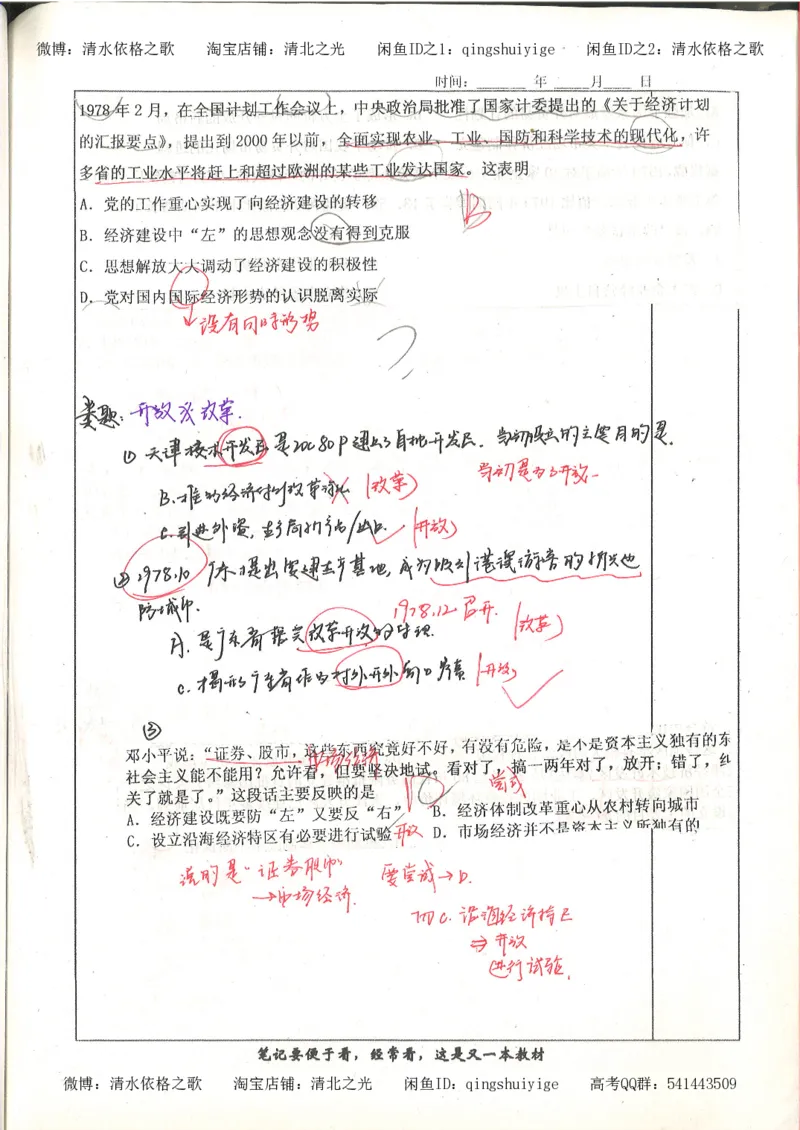 微博：清水依格之歌 淘宝店铺：清北之光 闲鱼ID之1：qingshuiyige 闲鱼ID之2：清水依格之歌
时间：______ 年 _____月____ 日
1978 年 2 月，在全国计划工作会议上，中央政治局批准了国家计委提出的《关于经济计划
的汇报要点》，提出到 2000 年以前，全面实现农业、工业、国防和科学技术的现代化，许
多省的工业水平将赶上和超过欧洲的某些工业发达国家。这表明
A．党的工作重心实现了向经济建设的转移
B
B．经济建设中“左”的思想观念没有得到克服
C．思想解放大大调动了经济建设的积极性
D．党对国内国际经济形势的认识脱离实际
没有国际形势
类题：开放 改革.
① 天津技术开发区是20C80年代建立的 开发区．当初设立的主要目的是
当初是为了开放
B.推 经济体制改革 (改革)
C.引进外资, (开放)
② 1978.10 广东提出要建 基地, 成为吸引港澳游客的
防城市.
1978.12召开.
A. 是广东省 改革开放的 (改革)
C. 广东省作为对外开 (开放)
③
邓小平说：“证券、股市，这些东西究竟好不好，有没有危险，是不是资本主义独有的东
市场经济
社会主义能不能用？允许看，但要坚决地试。看对了，搞一两年对了，放开；错了，纠
尝试
关了就是了。”这段话主要反映的是
A．经济建设既要防“左”又要反“右” B．经济体制改革重心从农村转向城市
C．设立沿海经济特区有必要进行试验 开放 D．市场经济并不是资本主义所独有的
说的是“证券股市” 要尝试→D.
→市场经济.
而C. 设沿海经济特区
⇒ 开放
进行试验.
笔记要便于看，经常看，这是又一本教材
微博：清水依格之歌 淘宝店铺：清北之光 闲鱼ID：qingshuiyige 高考QQ群：541443509